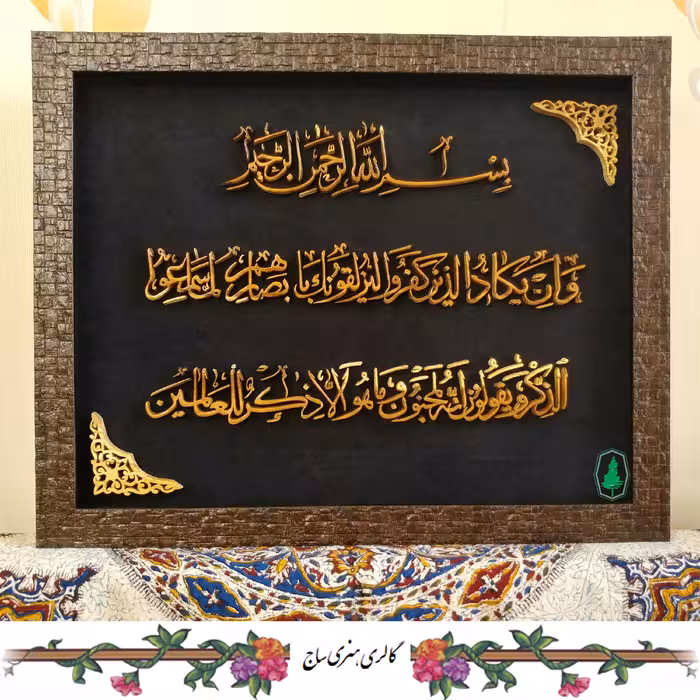 بِسْمِ اللهِ الرَّحْمٰنِ الرَّحِيْمِ
وَاِنْ يَكَادُ الَّذِينَ كَفَرُوا لَيُزْلِقُونَكَ بِاَبْصَارِهِمْ لَمَّا سَمِعُوا
الذِّكْرَ وَيَقُولُونَ اِنَّهُ لَمَجْنُونٌ وَمَا هُوَ اِلَّا ذِكْرٌ لِلْعَالَمِينَ
گالری هنری ساج